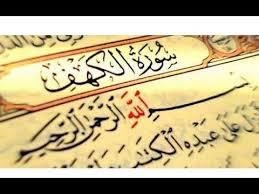 سُورَةُ الكَهْفِ
بِسْمِ اللَّهِ الرَّحْمَٰنِ الرَّحِيمِ
عَلَىٰ عَبْدِهِ الْكِتَٰبَ